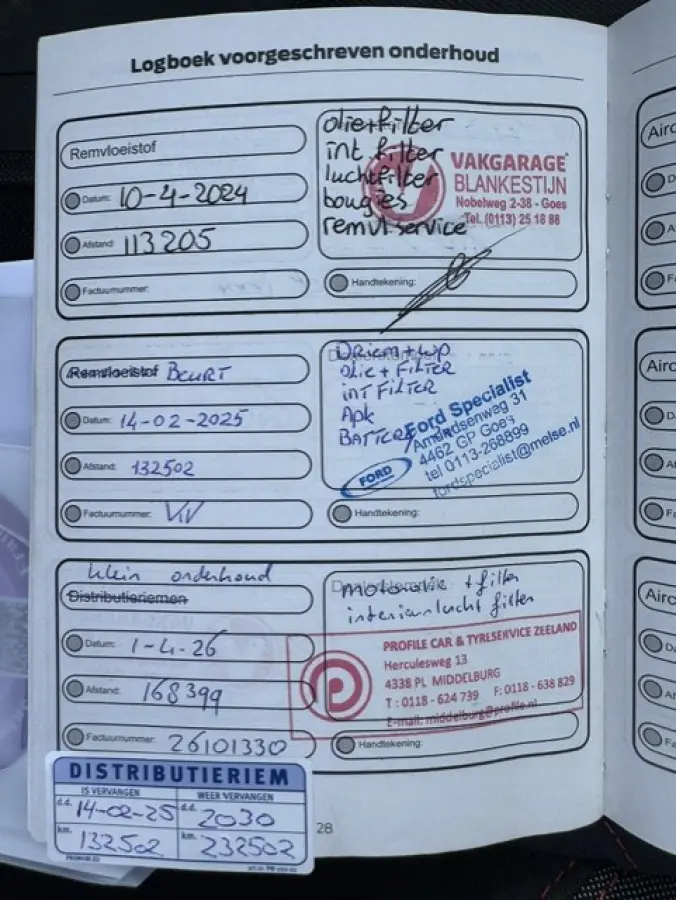 Logboek voorgeschreven onderhoud
Remvloeistof
Datum: 10-4-2024
Afstand: 113205
Factuurnummer:
olie+filter
int filter
luchtfilter
bougies
remvl service
VAKGARAGE
BLANKESTIJN
Nobelweg 2-38 - Goes
Tel. (0113) 25 18 88
Handtekening:
Remvloeistof BEURT
Datum: 14-02-2025
Afstand: 132502
Factuurnummer:
DRiem + WP
OLIE + FILTER
INT FILTER
Apk
Ford Specialist
4462 GP Goes
tel 0113-268899
fordspecialist@melse.nl
FORD
Handtekening:
klein onderhoud
Distributieriemen
Datum: 1-4-26
Afstand: 168399
Factuurnummer: 26101330
motorolie + filter
interieurlucht filter
PROFILE CAR & TYRESERVICE ZEELAND
Herculesweg 13
4338 PL MIDDELBURG
T : 0118 - 624 739 F: 0118 - 638 829
E-mail: middelburg@profile.nl
Handtekening:
DISTRIBUTIERIEM
IS VERVANGEN
WEER VERVANGEN
d.d. 14-02-25
d.d. 2030
km. 132502
km. 232502
28
Airc
Airc
Airc